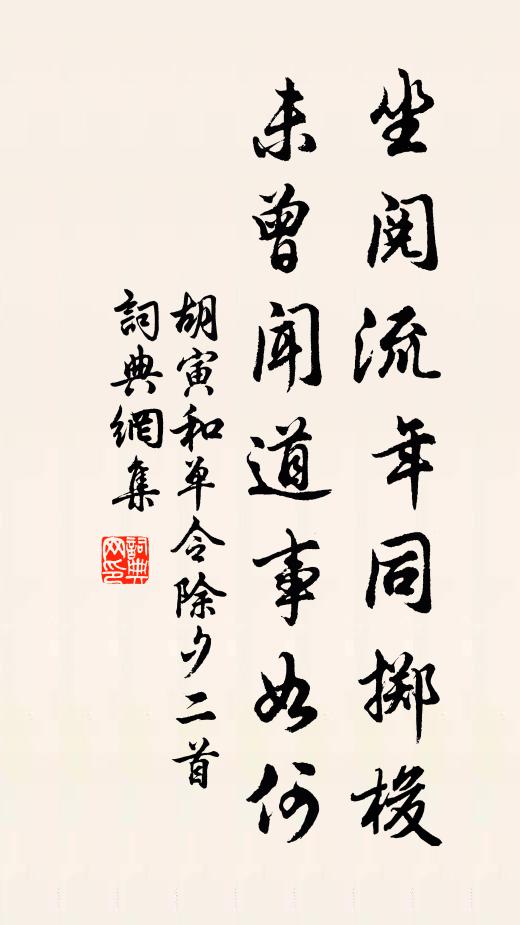 坐閱流年同擲梭
未曾聞道事如何
胡寅和单令除夕二首
詞典網集
詞典網印